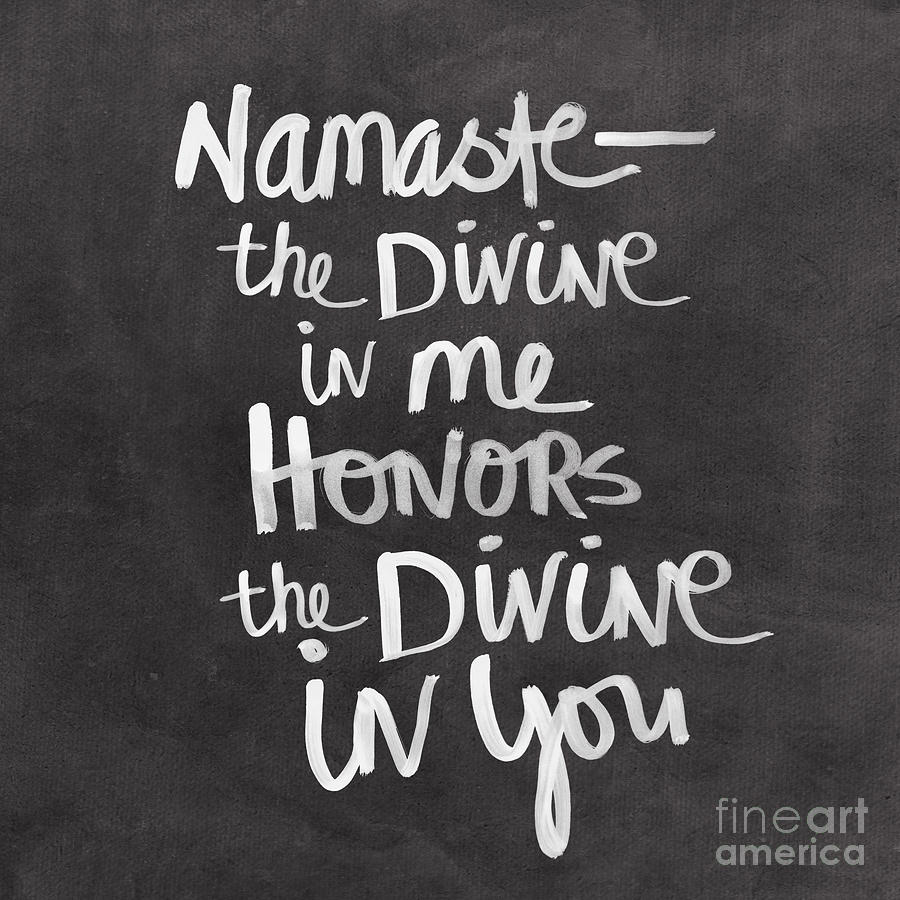 Namaste—
the Divine
in me
HONORS
the Divine
in you
fineart
america